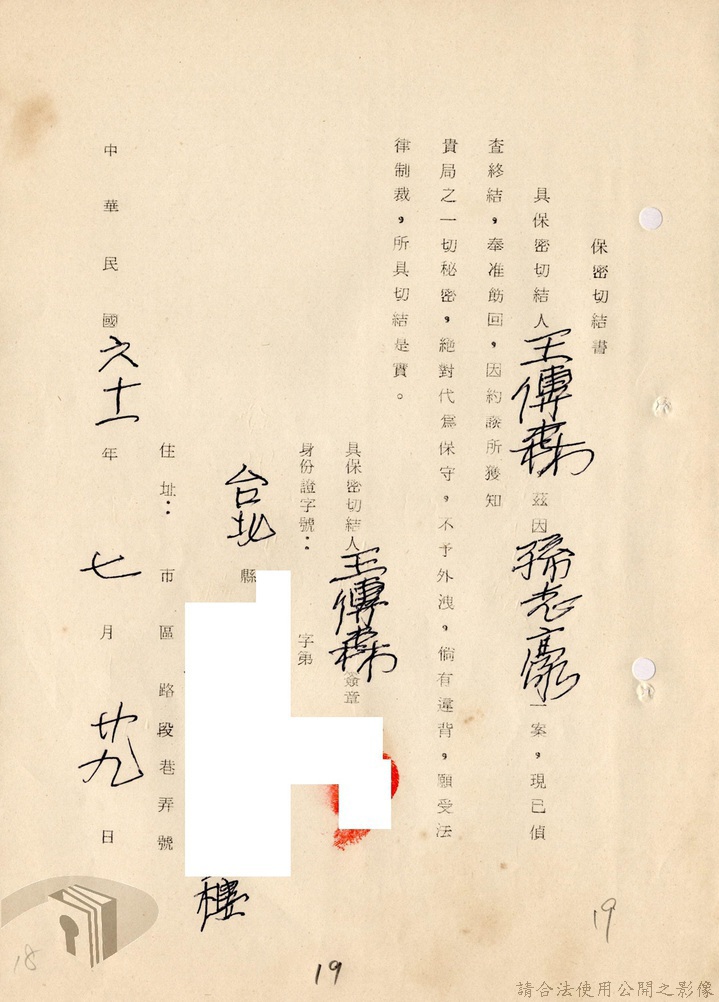 保密切結書
具保密切結人王傳霖茲因孫志豪一案，現已偵
查終結，奉准飭回，因約談所獲知
貴局之一切秘密，絕對代為保守，不予外洩，倘有違背，願受法
律制裁，所具切結是實。
具保密切結人王傳霖簽章
身份證字號：字第
台北縣
樓
住址：市區路段巷弄號
中華民國六十一年七月廿九日
19
19
18
請合法使用公開之影像